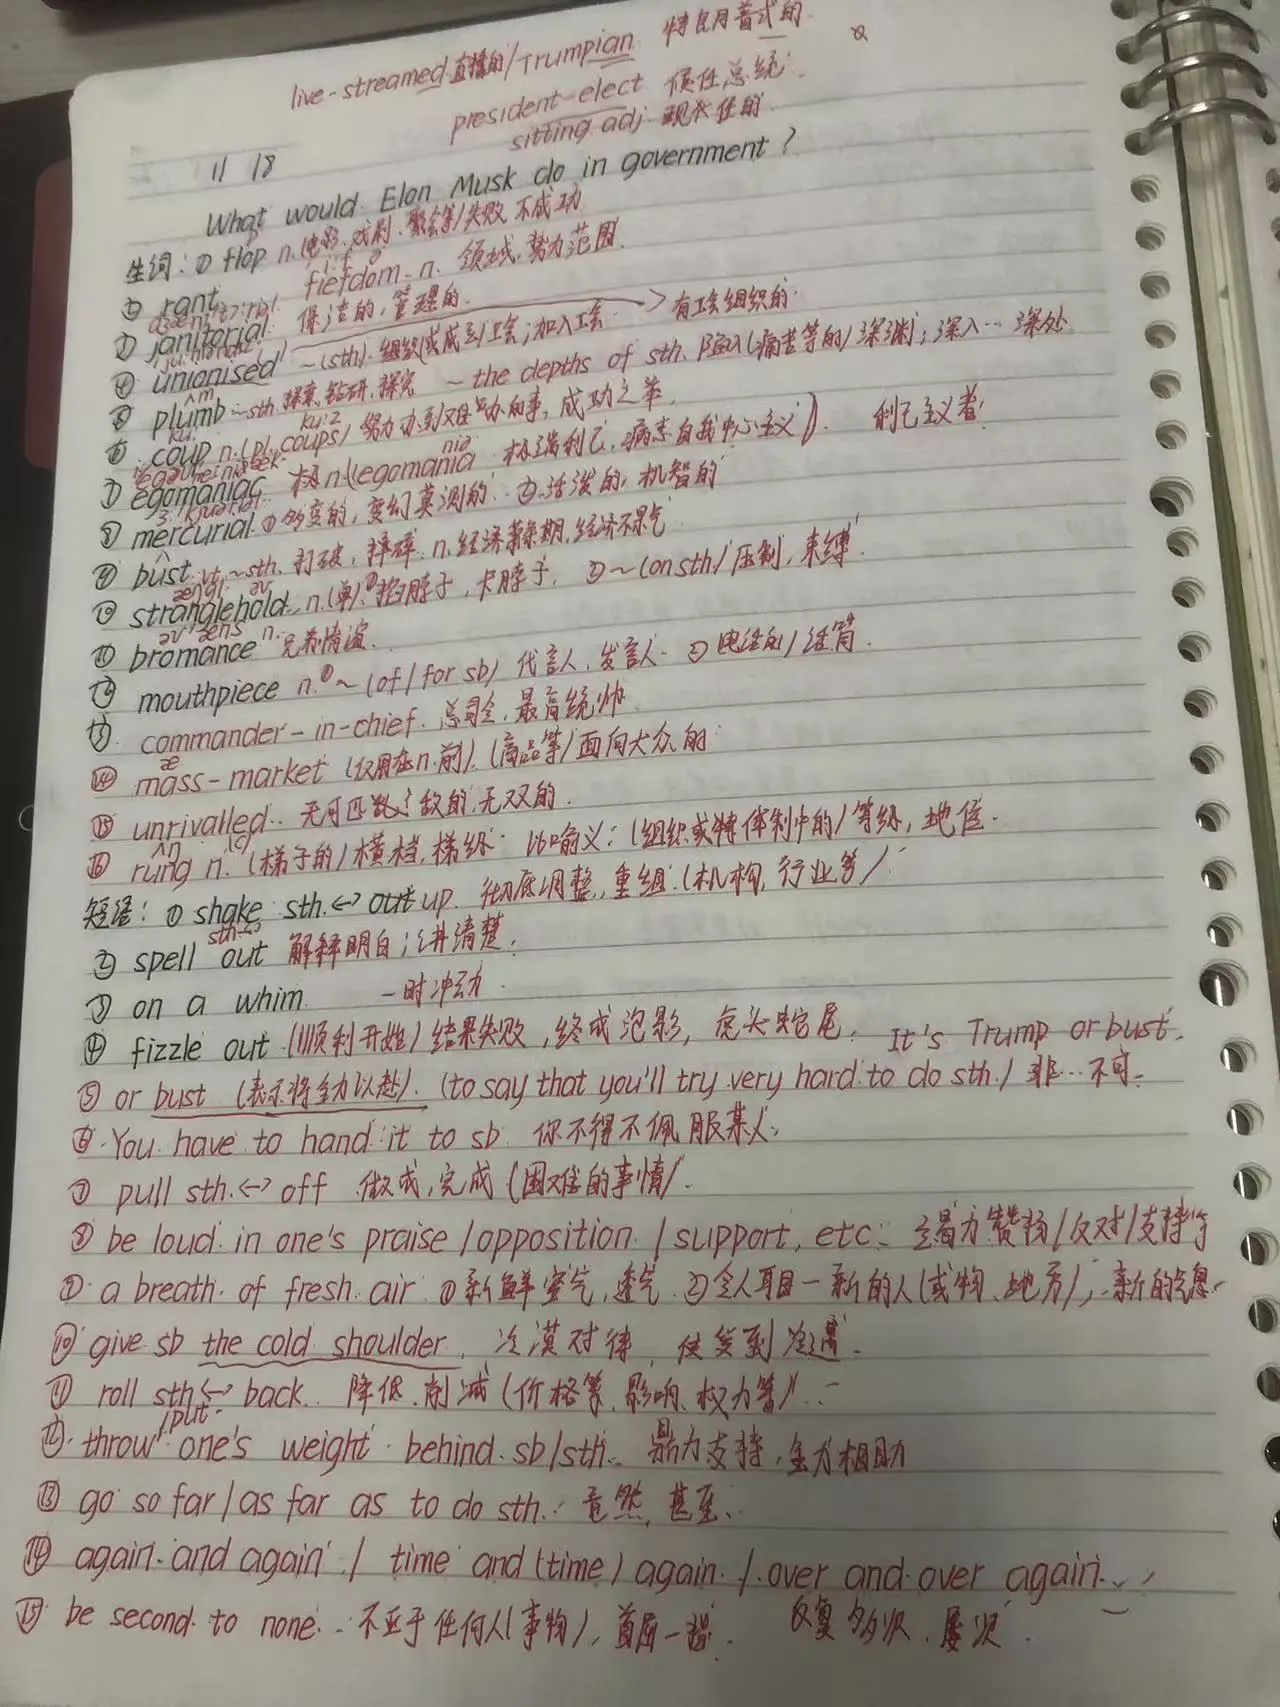 live-streamed 直播的/Trumpian 特朗普式的
president-elect 候任总统
sitting adj. 现代任的
11 18
What would Elon Musk do in government?
生词: ① flop n. (电影、戏剧、聚会等)失败,不成功
② rant fiefdom n. 领域,势力范围
③ janitorial 保洁的,管理的
④ unionised ~(sth). 组织(或成立)工会;加入工会 → 有工会组织的
⑤ plumb ~sth. 探索,钻研,探究 ~ the depths of sth. 陷入(痛苦等的)深渊;深入…深处
⑥ coup n. (pl. coups) 努力办到难办的事,成功之举
⑦ egomaniac n.(egomania 极端利己,病态自我中心主义) 利己主义者
⑧ mercurial ①多变的,变幻莫测的 ②活泼的,机智的
⑨ bust vt. ~sth. 打破,摔碎 n. 经济萧条期,经济不景气
⑩ stranglehold n.(单)①掐脖子,卡脖子. ②~(on sth.) 压制,束缚
⑪ bromance n. 兄弟情谊
⑫ mouthpiece n. ①~(of/for sb) 代言人,发言人 ②电话的)话筒
⑬ commander-in-chief 总司令,最高统帅
⑭ mass-market (仅用在n.前).(商品等)面向大众的
⑮ unrivalled 无可匹敌的,无双的
⑯ rung n. (梯子的)横档,梯级 比喻义:(组织或特体制中的)等级,地位
短语: ① shake sth. ↔ up 彻底调整,重组(机构,行业等)
② spell sth ↔ out 解释明白;讲清楚
③ on a whim 一时冲动
④ fizzle out (顺利开始)结果失败,终成泡影,虎头蛇尾. It's Trump or bust.
⑤ or bust (表示将全力以赴). (to say that you'll try very hard to do sth.) 非…不可
⑥ You have to hand it to sb 你不得不佩服某人
⑦ pull sth. ↔ off 做成,完成(困难的事情)
⑧ be loud in one's praise/opposition/support, etc. 竭力赞扬/反对/支持等
⑨ a breath of fresh air ①新鲜空气,透气 ②令人耳目一新的人(或物、地方);新的气息
⑩ give sb the cold shoulder 冷漠对待,使受到冷遇
⑪ roll sth ↔ back 降低,削减(价格等,影响、权力等)
⑫ throw/put one's weight behind sb/sth. 鼎力支持,全力相助
⑬ go so far/as far as to do sth. 竟然,甚至
⑭ again and again / time and (time) again / over and over again
反复多次,屡次
⑮ be second to none 不亚于任何人(事物),首屈一指